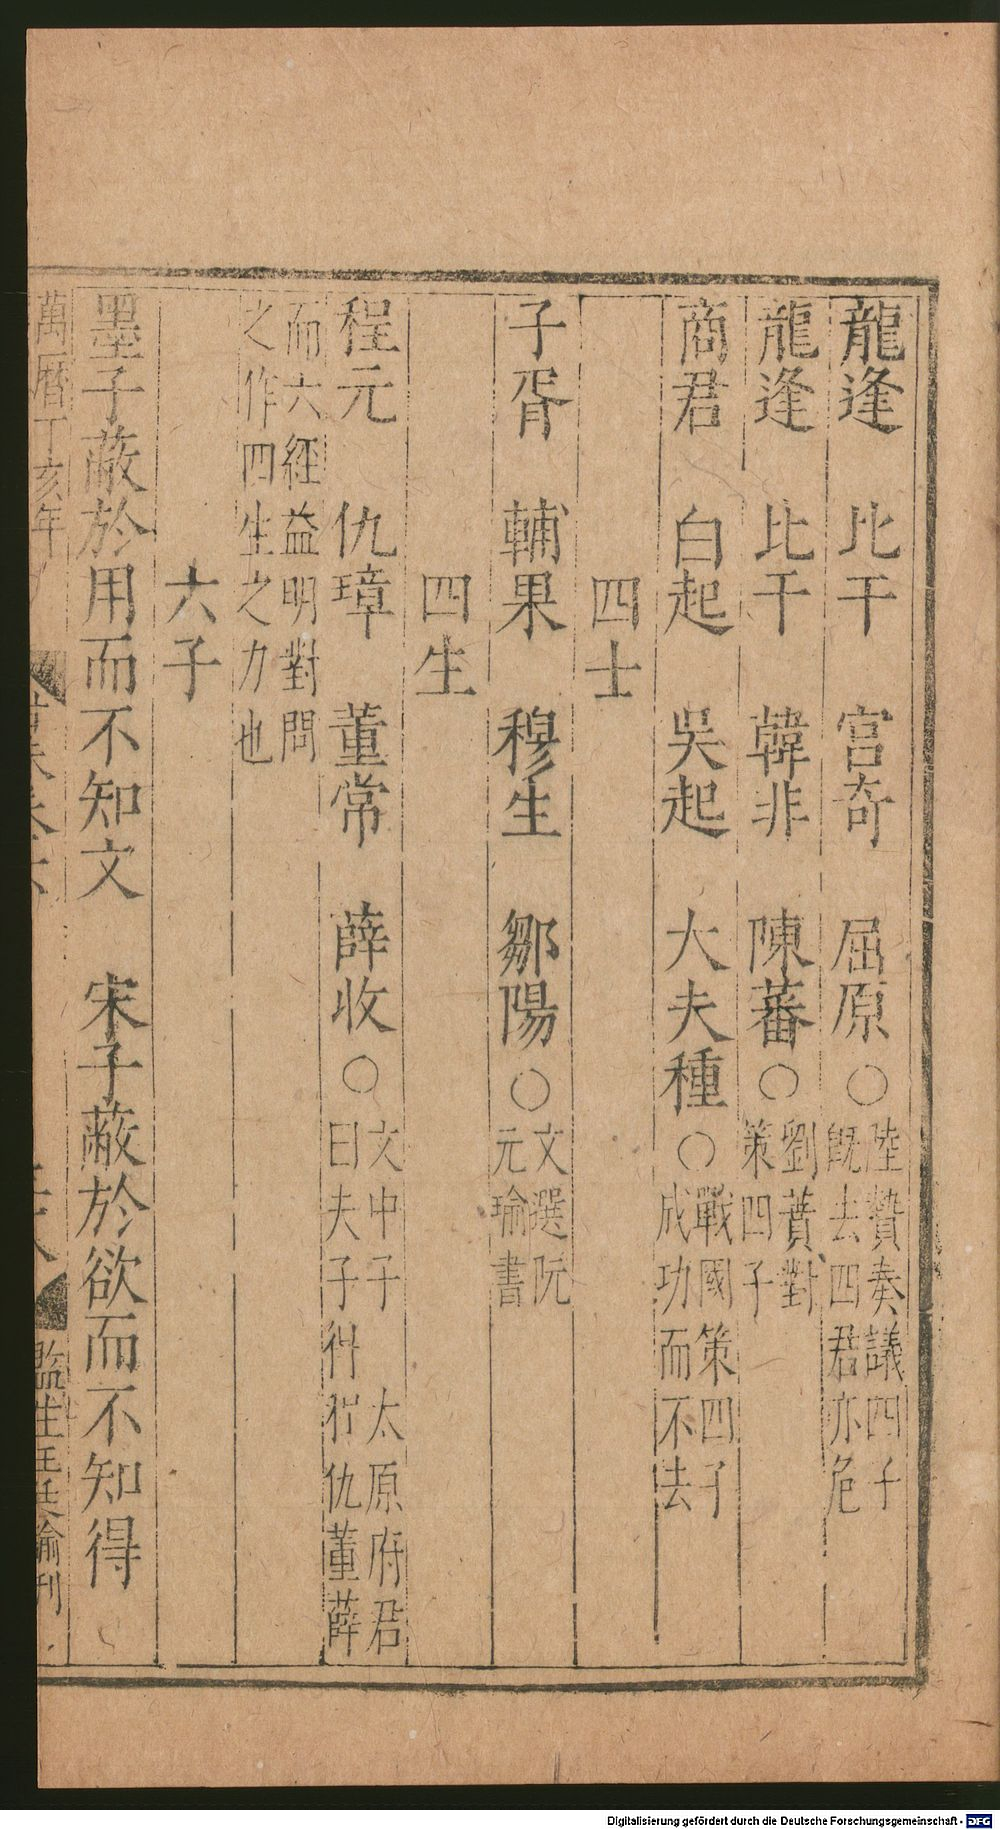 龍逢　比干　宮奇　屈原○陸贄奏議四子
既去四君亦危
龍逢　比干　韓非　陳蕃○劉蕡對
策四子
商君　白起　吳起　大夫種○戰國策四子
成功而不去
四士
子胥　輔果　穆生　鄒陽○文選阮
元瑜書
四生
程元　仇璋　董常　薛收○文中子　太原府君
曰夫子得程仇董薛
而六經益明對問
之作四生之力也
六子
墨子蔽於用而不知文　宋子蔽於欲而不知得
萬曆丁亥年
監生
刊
Digitalisierung gefördert durch die Deutsche Forschungsgemeinschaft - DFG